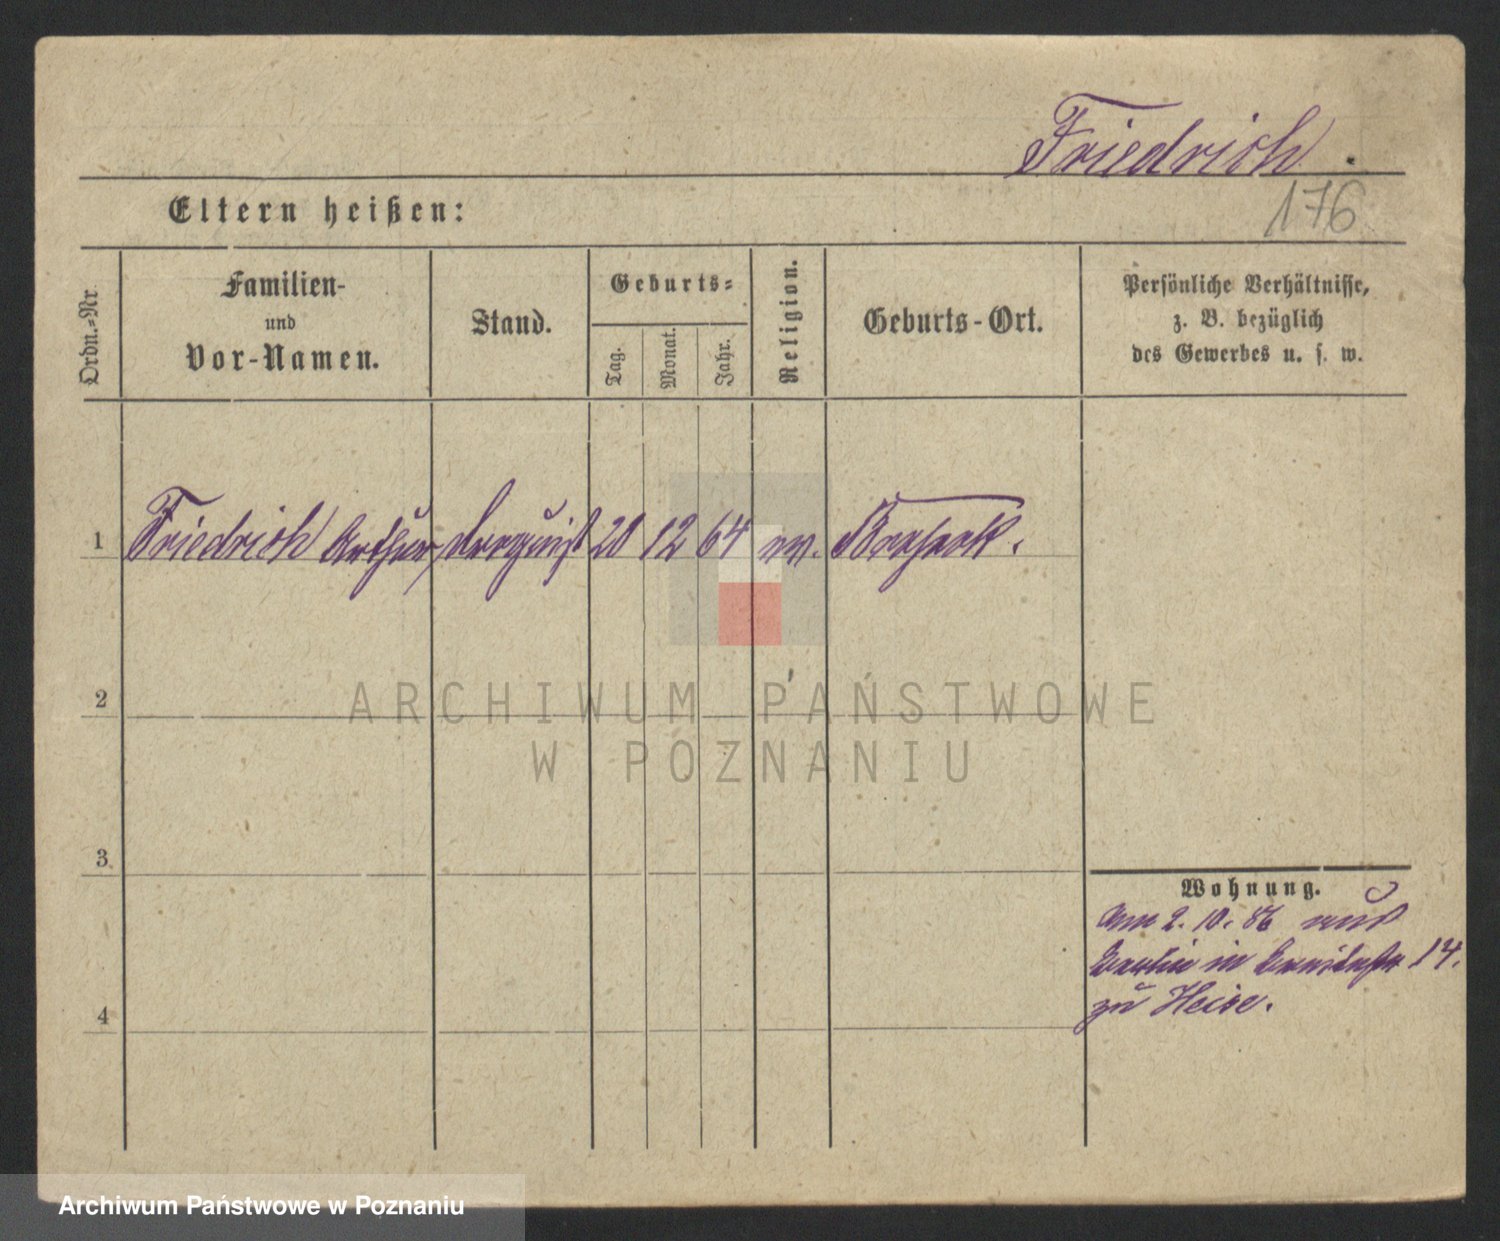 Friedrich.
176
Eltern heißen:
Ordn.=Nr.
Familien-
und
Vor-Namen.
Stand.
Geburts=
Tag.
Monat.
Jahr.
Religion.
Geburts-Ort.
Persönliche Verhältnisse,
z. B. bezüglich
des Gewerbes u. s. w.
1 Friedrich Arthur, 20 12 64 ev.
2
3
4
Wohnung.
Am 2. 10. 86 aus
Berlin in Breitestr 14.
zu Heise.
ARCHIWUM PAŃSTWOWE
W POZNANIU
Archiwum Państwowe w Poznaniu